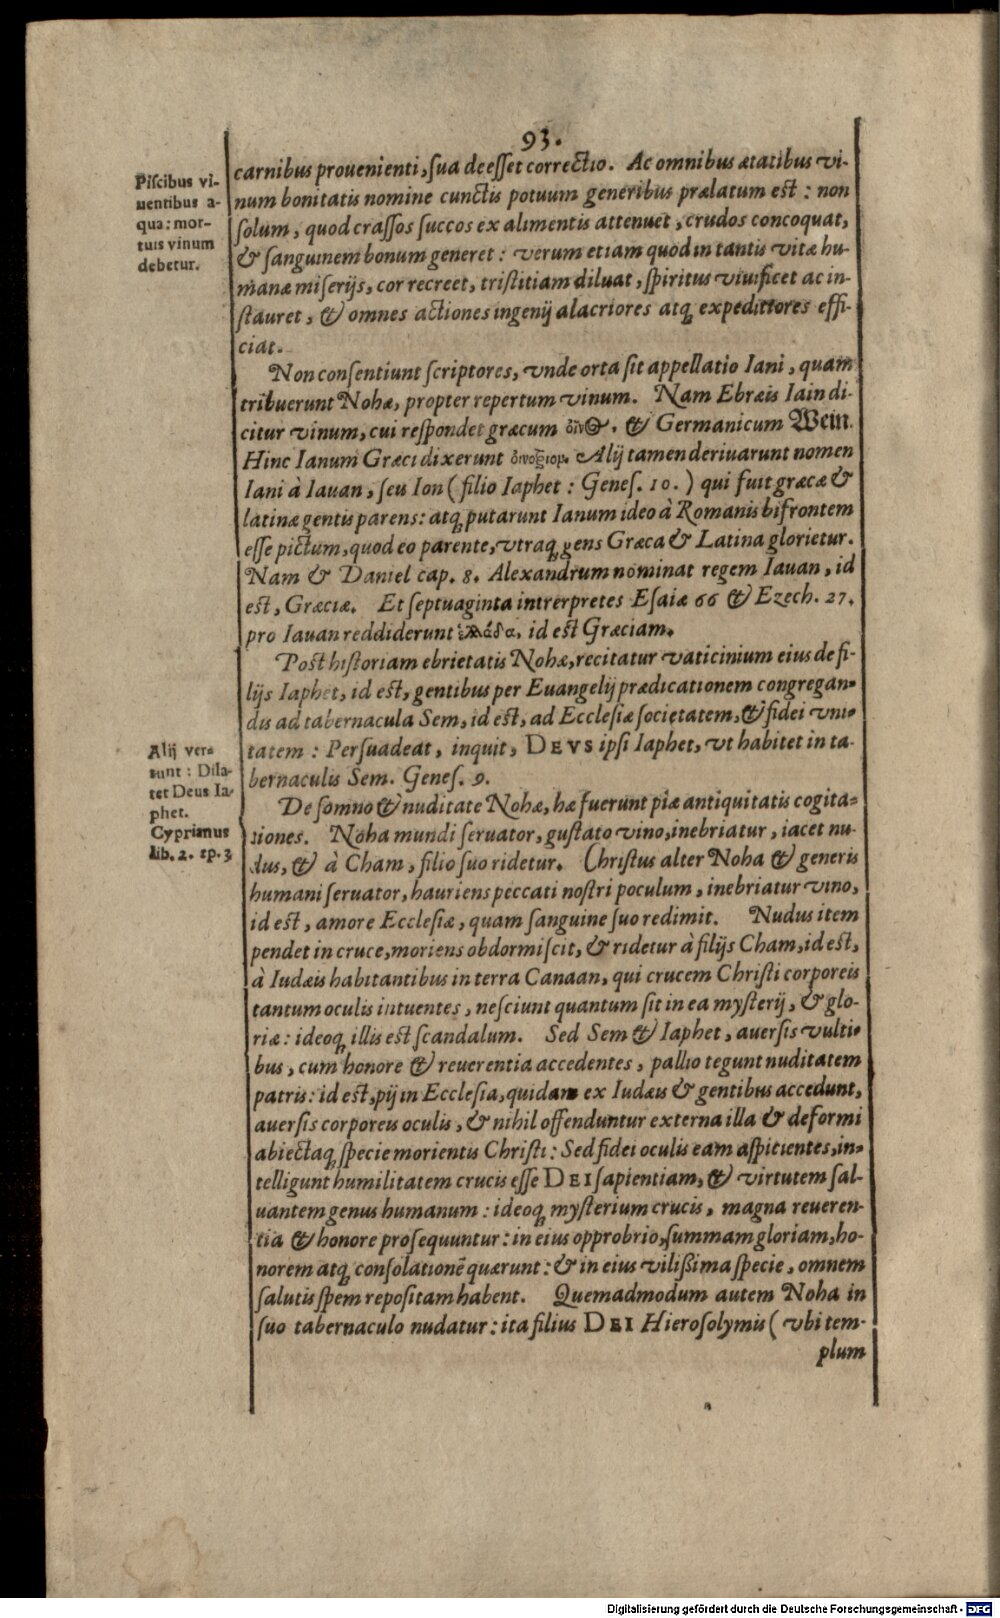 93.
carnibus prouenienti, sua deesset correctio. Ac omnibus ætatibus vi-
num bonitatis nomine cunctis potuum generibus prælatum est: non
solum, quod crassos succos ex alimentis attenuet, crudos concoquat,
& sanguinem bonum generet: verum etiam quod in tantis vitæ hu-
manæ miserijs, cor recreet, tristitiam diluat, spiritus viuificet ac in-
stauret, & omnes actiones ingenij alacriores atq; expeditiores effi-
ciat.
Piscibus vi-
uentibus a-
qua: mor-
tuis vinum
debetur.
Non consentiunt scriptores, vnde orta sit appellatio Iani, quam
tribuerunt Nohæ, propter repertum vinum. Nam Ebræis Iain di-
citur vinum, cui respondet græcum οἶνος, & Germanicum Wein.
Hinc Ianum Græci dixerunt Alij tamen deriuarunt nomen
Iani à Iauan, seu Ion (filio Iaphet: Genes. 10.) qui fuit græcæ &
latinæ gentis parens: atq; putarunt Ianum ideo à Romanis bifrontem
esse pictum, quod eo parente, vtraq; gens Græca & Latina glorietur.
Nam & Daniel cap. 8. Alexandrum nominat regem Iauan, id
est, Græciæ. Et septuaginta intrerpretes Esaiæ 66 & Ezech. 27.
pro Iauan reddiderunt ἑλλάδα, id est Græciam.
Post historiam ebrietatis Nohæ, recitatur vaticinium eius de fi-
lijs Iaphet, id est, gentibus per Euangelij prædicationem congregan-
dis ad tabernacula Sem, id est, ad Ecclesiæ societatem, & fidei vni-
tatem: Persuadeat, inquit, DEVS ipsi Iaphet, vt habitet in ta-
bernaculis Sem. Genes. 9.
Alij ver-
tunt: Dila-
tet Deus Ia-
phet.
Cyprianus
lib. 2. ep. 3
De somno & nuditate Nohæ, hæ fuerunt piæ antiquitatis cogita-
tiones. Noha mundi seruator, gustato vino, inebriatur, iacet nu-
dus, & à Cham, filio suo ridetur. Christus alter Noha & generis
humani seruator, hauriens peccati nostri poculum, inebriatur vino,
id est, amore Ecclesiæ, quam sanguine suo redimit. Nudus item
pendet in cruce, moriens obdormiscit, & ridetur à filijs Cham, id est,
à Iudæis habitantibus in terra Canaan, qui crucem Christi corporeis
tantum oculis intuentes, nesciunt quantum sit in ea mysterij, & glo-
riæ: ideoq; illis est scandalum. Sed Sem & Iaphet, auersis vulti-
bus, cum honore & reuerentia accedentes, pallio tegunt nuditatem
patris: id est, pij in Ecclesia, quidam ex Iudæis & gentibus accedunt,
auersis corporeis oculis, & nihil offenduntur externa illa & deformi
abiectaq; specie morientis Christi: Sed fidei oculis eam aspicientes, in-
telligunt humilitatem crucis esse DEI sapientiam, & virtutem sal-
uantem genus humanum: ideoq; mysterium crucis, magna reueren-
tia & honore prosequuntur: in eius opprobrio, summam gloriam, ho-
norem atq; consolationē quærunt: & in eius vilißima specie, omnem
salutis spem repositam habent. Quemadmodum autem Noha in
suo tabernaculo nudatur: ita filius DEI Hierosolymis (vbi tem-
plum
Digitalisierung gefördert durch die Deutsche Forschungsgemeinschaft - DFG